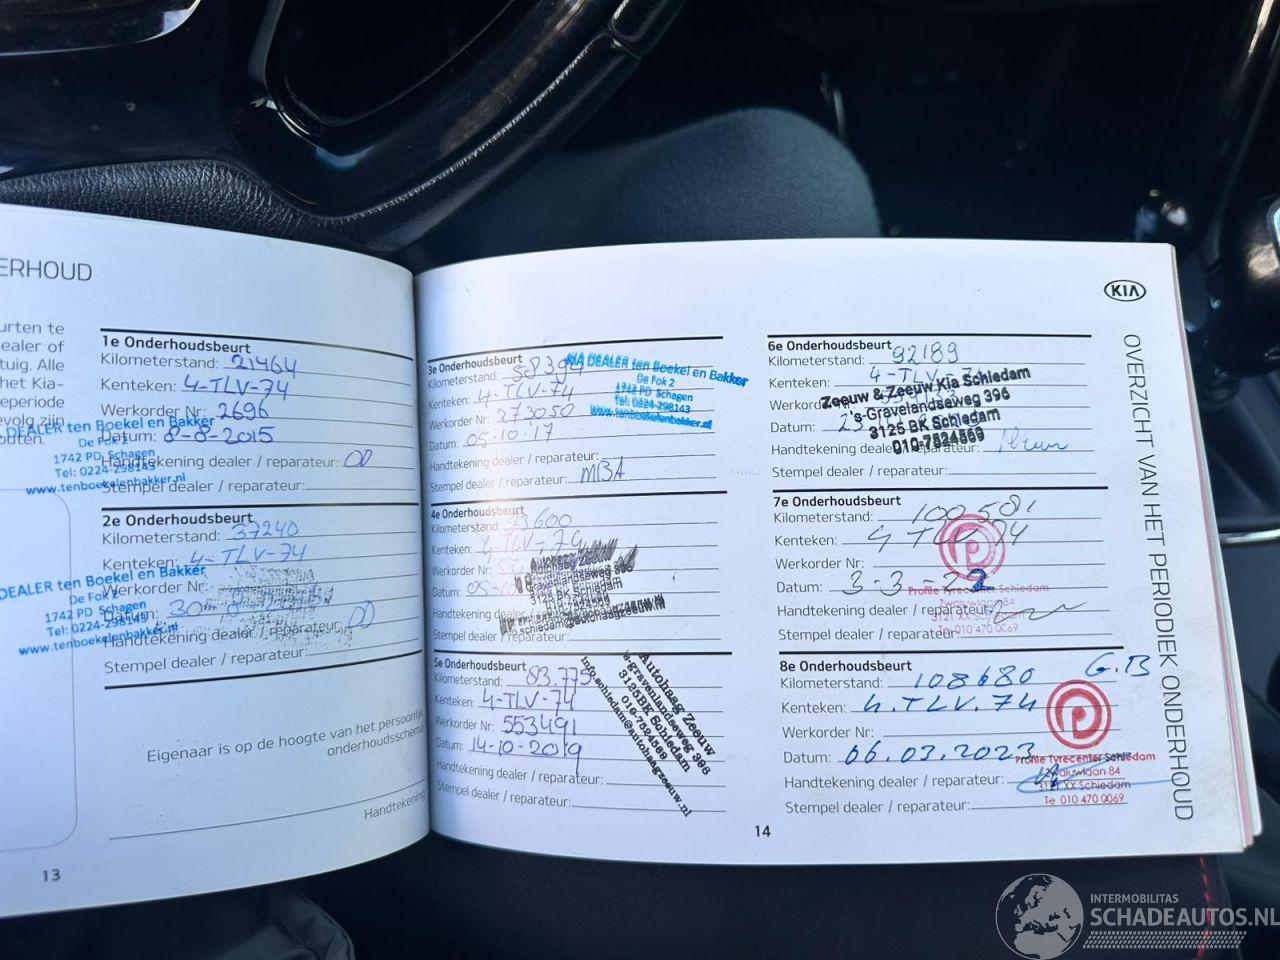 ERHOUD
urten te
ealer of
tuig. Alle
het Kia-
eperiode
evolg zijn
outen.
1e Onderhoudsbeurt
Kilometerstand: 21464
Kenteken: 4-TLV-74
Werkorder Nr: 2696
Datum: 8-8-2015
Handtekening dealer / reparateur:
Stempel dealer / reparateur:
DEALER ten Boekel en Bakker
De Fok 2
1742 PD Schagen
Tel: 0224-298143
www.tenboekelenbakker.nl
2e Onderhoudsbeurt
Kilometerstand: 37240
Kenteken: 4-TLV-74
Werkorder Nr:
Datum: 30-
Handtekening dealer / reparateur:
Stempel dealer / reparateur:
DEALER ten Boekel en Bakker
De Fok 2
1742 PD Schagen
Tel: 0224-298143
www.tenboekelenbakker.nl
Eigenaar is op de hoogte van het persoonlijk
onderhoudsschema
Handtekening
13
3e Onderhoudsbeurt
Kilometerstand:
Kenteken: 4-TLV-74
Werkorder Nr: 373050
Datum: 05-10-17
Handtekening dealer / reparateur: MBA
Stempel dealer / reparateur:
KIA DEALER ten Boekel en Bakker
De Fok 2
1742 PD Schagen
Tel: 0224-298143
www.tenboekelenbakker.nl
4e Onderhoudsbeurt
Kilometerstand:
Kenteken: 4-TLV-74
Werkorder Nr:
Datum:
Handtekening dealer / reparateur:
Stempel dealer / reparateur:
Autohaag Zeeuw
's Gravelandseweg 396
3125 BK Schiedam
5e Onderhoudsbeurt
Kilometerstand: 83.775
Kenteken: 4-TLV-74
Werkorder Nr: 553491
Datum: 14-10-2019
Handtekening dealer / reparateur:
Stempel dealer / reparateur:
Autohaag Zeeuw
's-gravenlandseweg 396
3125BK Schiedam
010-7524569
info.schiedam@autohaagzeeuw.nl
14
6e Onderhoudsbeurt
Kilometerstand: 92189
Kenteken: 4-TLV-74
Werkorder
Datum:
Handtekening dealer / reparateur:
Stempel dealer / reparateur:
Zeeuw & Zeeuw Kia Schiedam
's-Gravelandseweg 396
3125 BK Schiedam
010-7524569
7e Onderhoudsbeurt
Kilometerstand: 100581
Kenteken: 4 TLV 74
Werkorder Nr:
Datum: 3-3-22
Handtekening dealer / reparateur:
Stempel dealer / reparateur:
Profile Tyrecenter Schiedam
3121 XX Schiedam
Tel 010 470 0069
8e Onderhoudsbeurt G.B
Kilometerstand: 108680
Kenteken: 4.TLV.74
Werkorder Nr:
Datum: 06.03.2023
Handtekening dealer / reparateur:
Stempel dealer / reparateur:
Profile Tyrecenter Schiedam
84
3121 XX Schiedam
Te 010 470 0069
KIA
OVERZICHT VAN HET PERIODIEK ONDERHOUD
INTERMOBILITAS
SCHADEAUTOS.NL